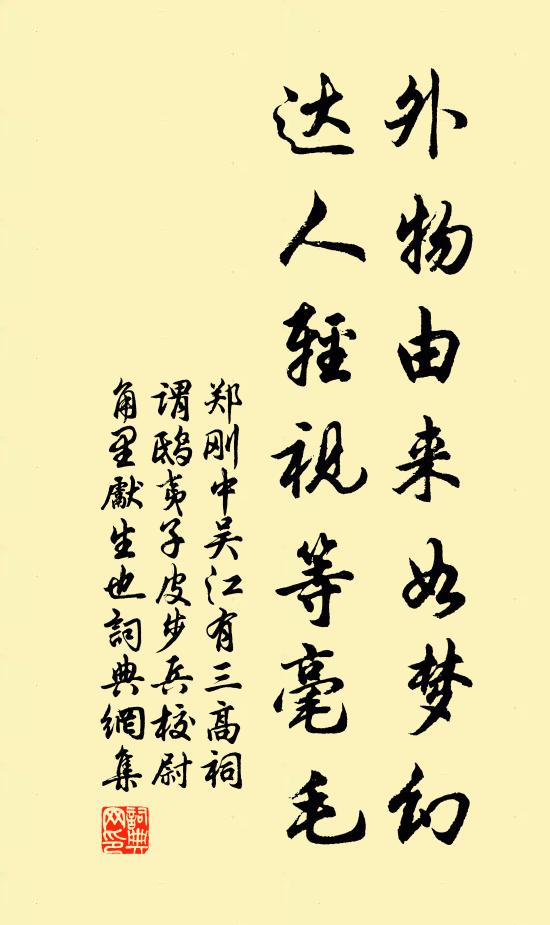 外物由来如梦幻
达人轻视等毫毛
郑刚中吴江有三高祠
谓鸱夷子皮步兵校尉
角里献生也詞典網集
詞典网印